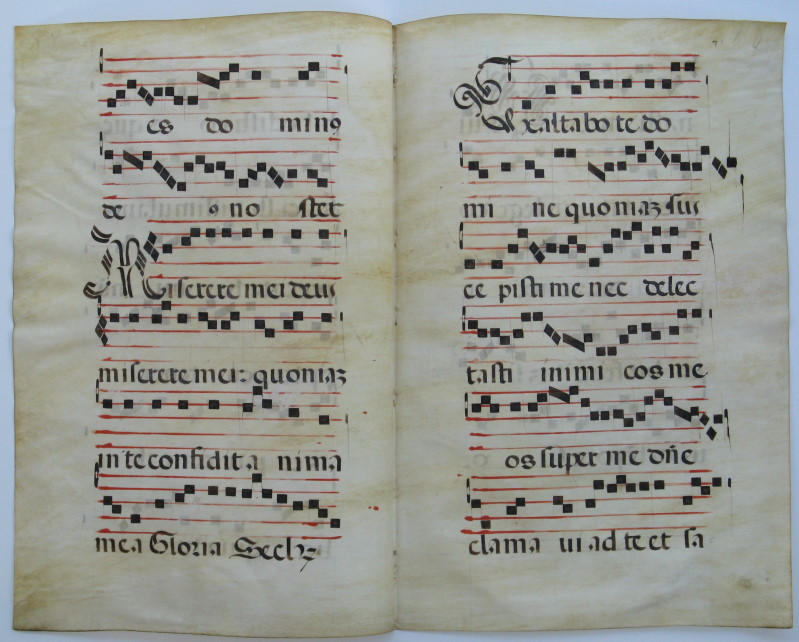 es do minꝰ
de ꝰ no stet
Miserere mei deus
miserere mei: quoniaʒ
in te confidit a nima
mea Gloria Seclʒ
Exaltabo te do
mi ne quoniaʒ sus
ce pisti me nec delec
tasti inimi cos me
os super me dñe
clama ui ad te et sa